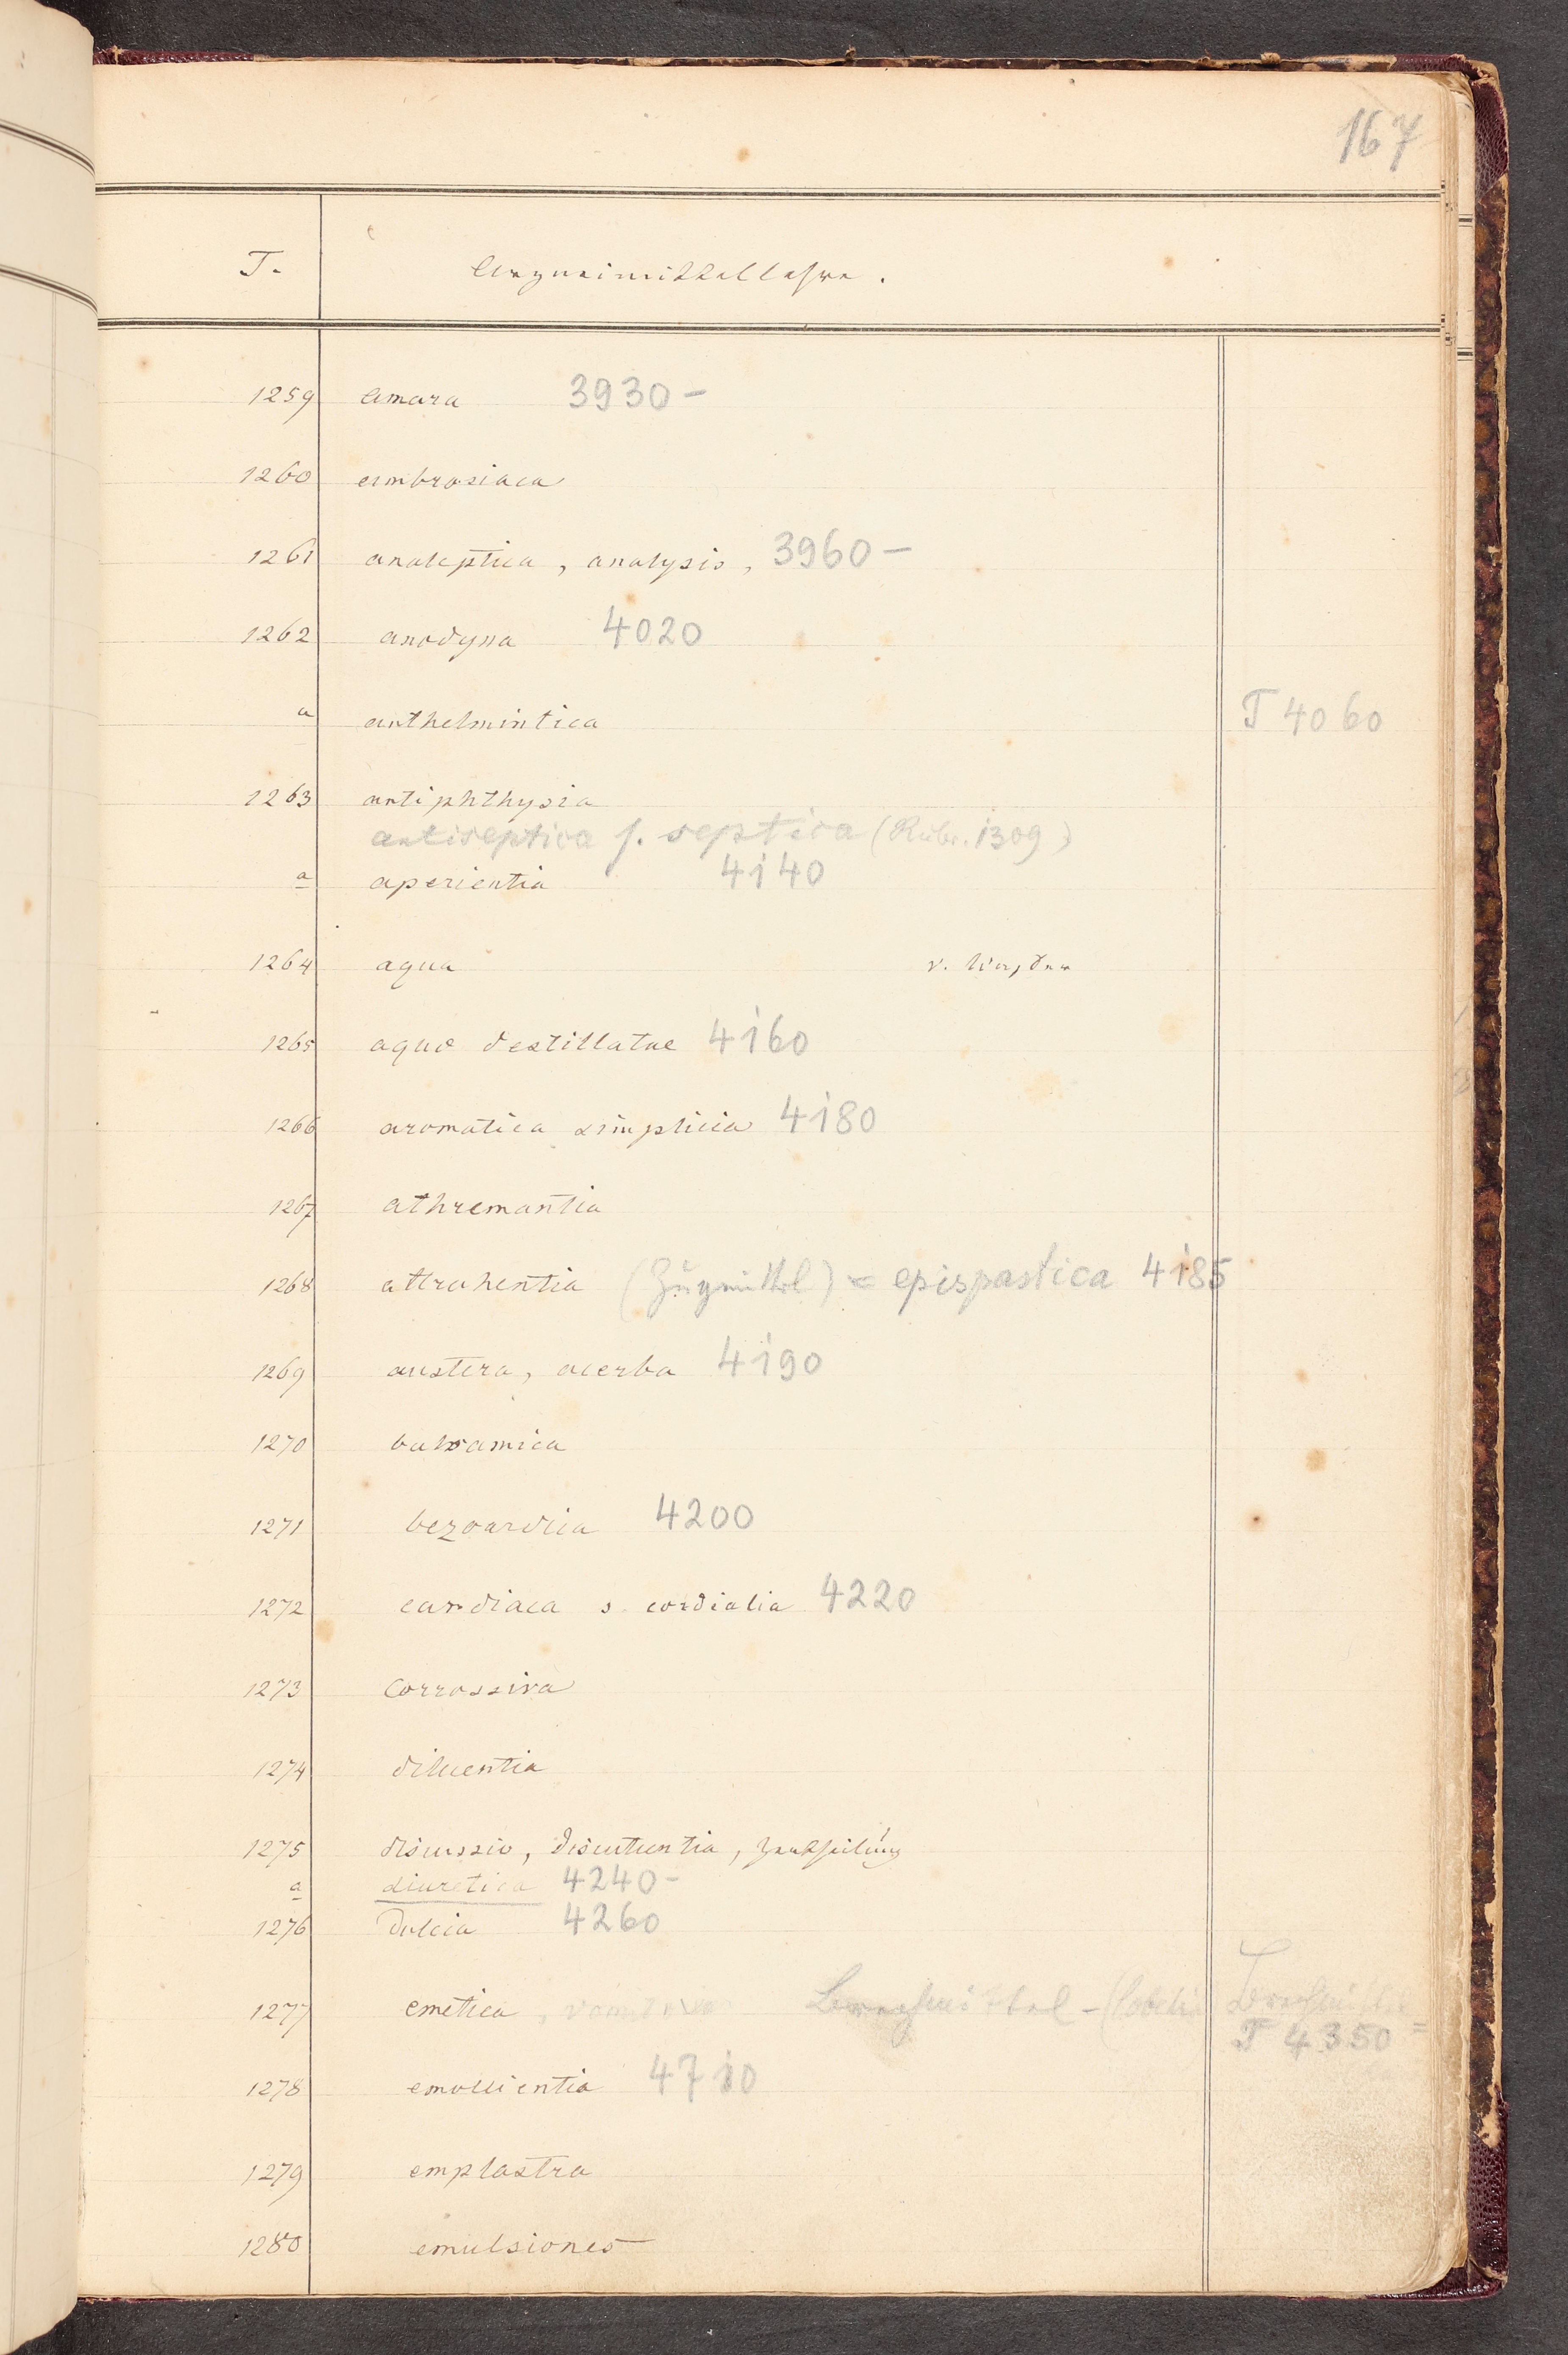 167
T. Arzneimittellehre.
1259 amara 3930 -
1260 ambrosiaca
1261 analeptica, analysis, 3960 -
1262 anodyna 4020
a anthelmintica T 4060
1263 antiphthysia
antiseptica f. septica (Rubr. 1309)
a aperientia 4140
1264 aqua v.
1265 aquae destillatae 4160
1266 aromatica simplicia 4180
1267 athremantia
1268 attrahentia (Zügmittel) = epispastica 4185
1269 austera, acerba 4190
1270 balsamica
1271 bezoardica 4200
1272 cardiaca s. cordialia 4220
1273 corrossiva
1274 diluentia
1275 discussio, discutientia, Zertheilung
a diuretica 4240 -
1276 dulcia 4260
1277 emetica, vomitoria Brechmittel - (Lobelia Brechmittel
T 4350 =
1278 emollientia 4710
1279 emplastra
1280 emulsiones